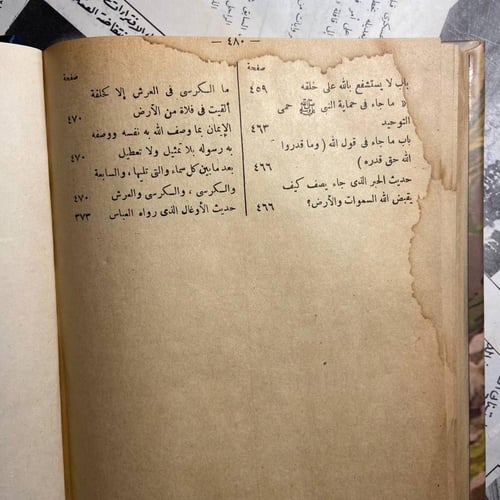 — ٤٨٠ —
صفحة
باب لا يستشفع بالله على خلقه ٤٥٩
« ما جاء فى حماية النبي ﷺ حمى
التوحيد ٤٦٣
باب ما جاء فى قول الله ( وما قدروا
الله حق قدره ) ٤٦٦
حديث الحبر الذى جاء يصف كيف
يقبض الله السموات والأرض؟ ٤٦٦
صفحة
ما السكرسى فى العرش إلا كحلقة
ألقيت فى فلاة من الأرض ٤٧٠
الإيمان بما وصف الله به نفسه ووصفه
به رسوله بلا تمثيل ولا تعطيل ٤٧٠
بعد مابين كل سماء والتى تليها، والسابعة
والسكرسى ، والسكرسى والعرش ٤٧٠
حديث الأوعال الذى رواه العباس ٣٧٣